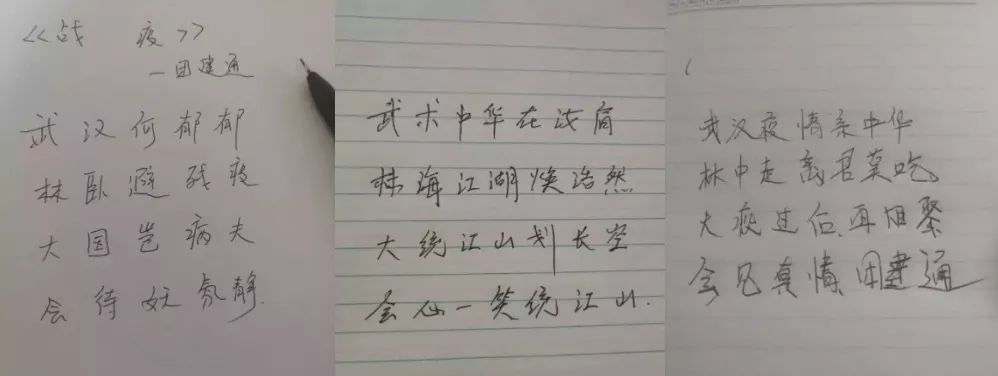 《战 疫》
一团建通
武汉何郁郁
林卧避残疫
大国岂病夫
会待妖氛静.
武术中华在汝肩
林海江湖焕浩然
大统江山划长空
会心一笑统江山.
武汉疫情亲中华
林中走离君莫吃
大疫过后再相聚
会见真情团建通